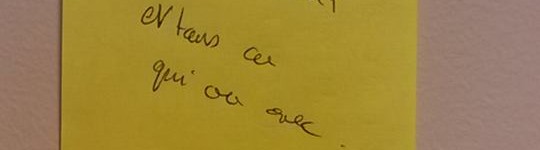 et tous ce
qui va avec.